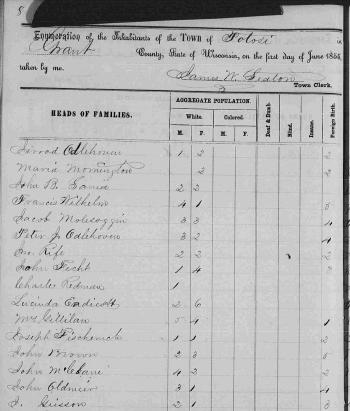 8
Enumeration of the Inhabitants of the TOWN of Potosi in
Grant County, State of Wisconsin, on the first day of June 1855,
taken by me.
James W. Seaton
Town Clerk.
HEADS OF FAMILIES.
AGGREGATE POPULATION.
White. Colored.
M. F. M. F. Deaf & Dumb. Blind. Insane. Foreign Birth.
Jarrod Odlehoven 1 2 2
Maria Mornington 2 2
John B. 2 2
Francis Wilhelm 4 1 5
Jacob Molesoggin 3 3 4
Peter J. Odlehoven 3 2 4
Rife 2 2 2
John Fecht 1 4 3
Charles Redman 1
Lucinda Endicott 2 6
Gillilan 5 4 1
Joseph Fischenick 1 1 2
John Brown 2 3 5
John McClane 4 2 2
John Oldmier 3 1 4
J. 2 1 3